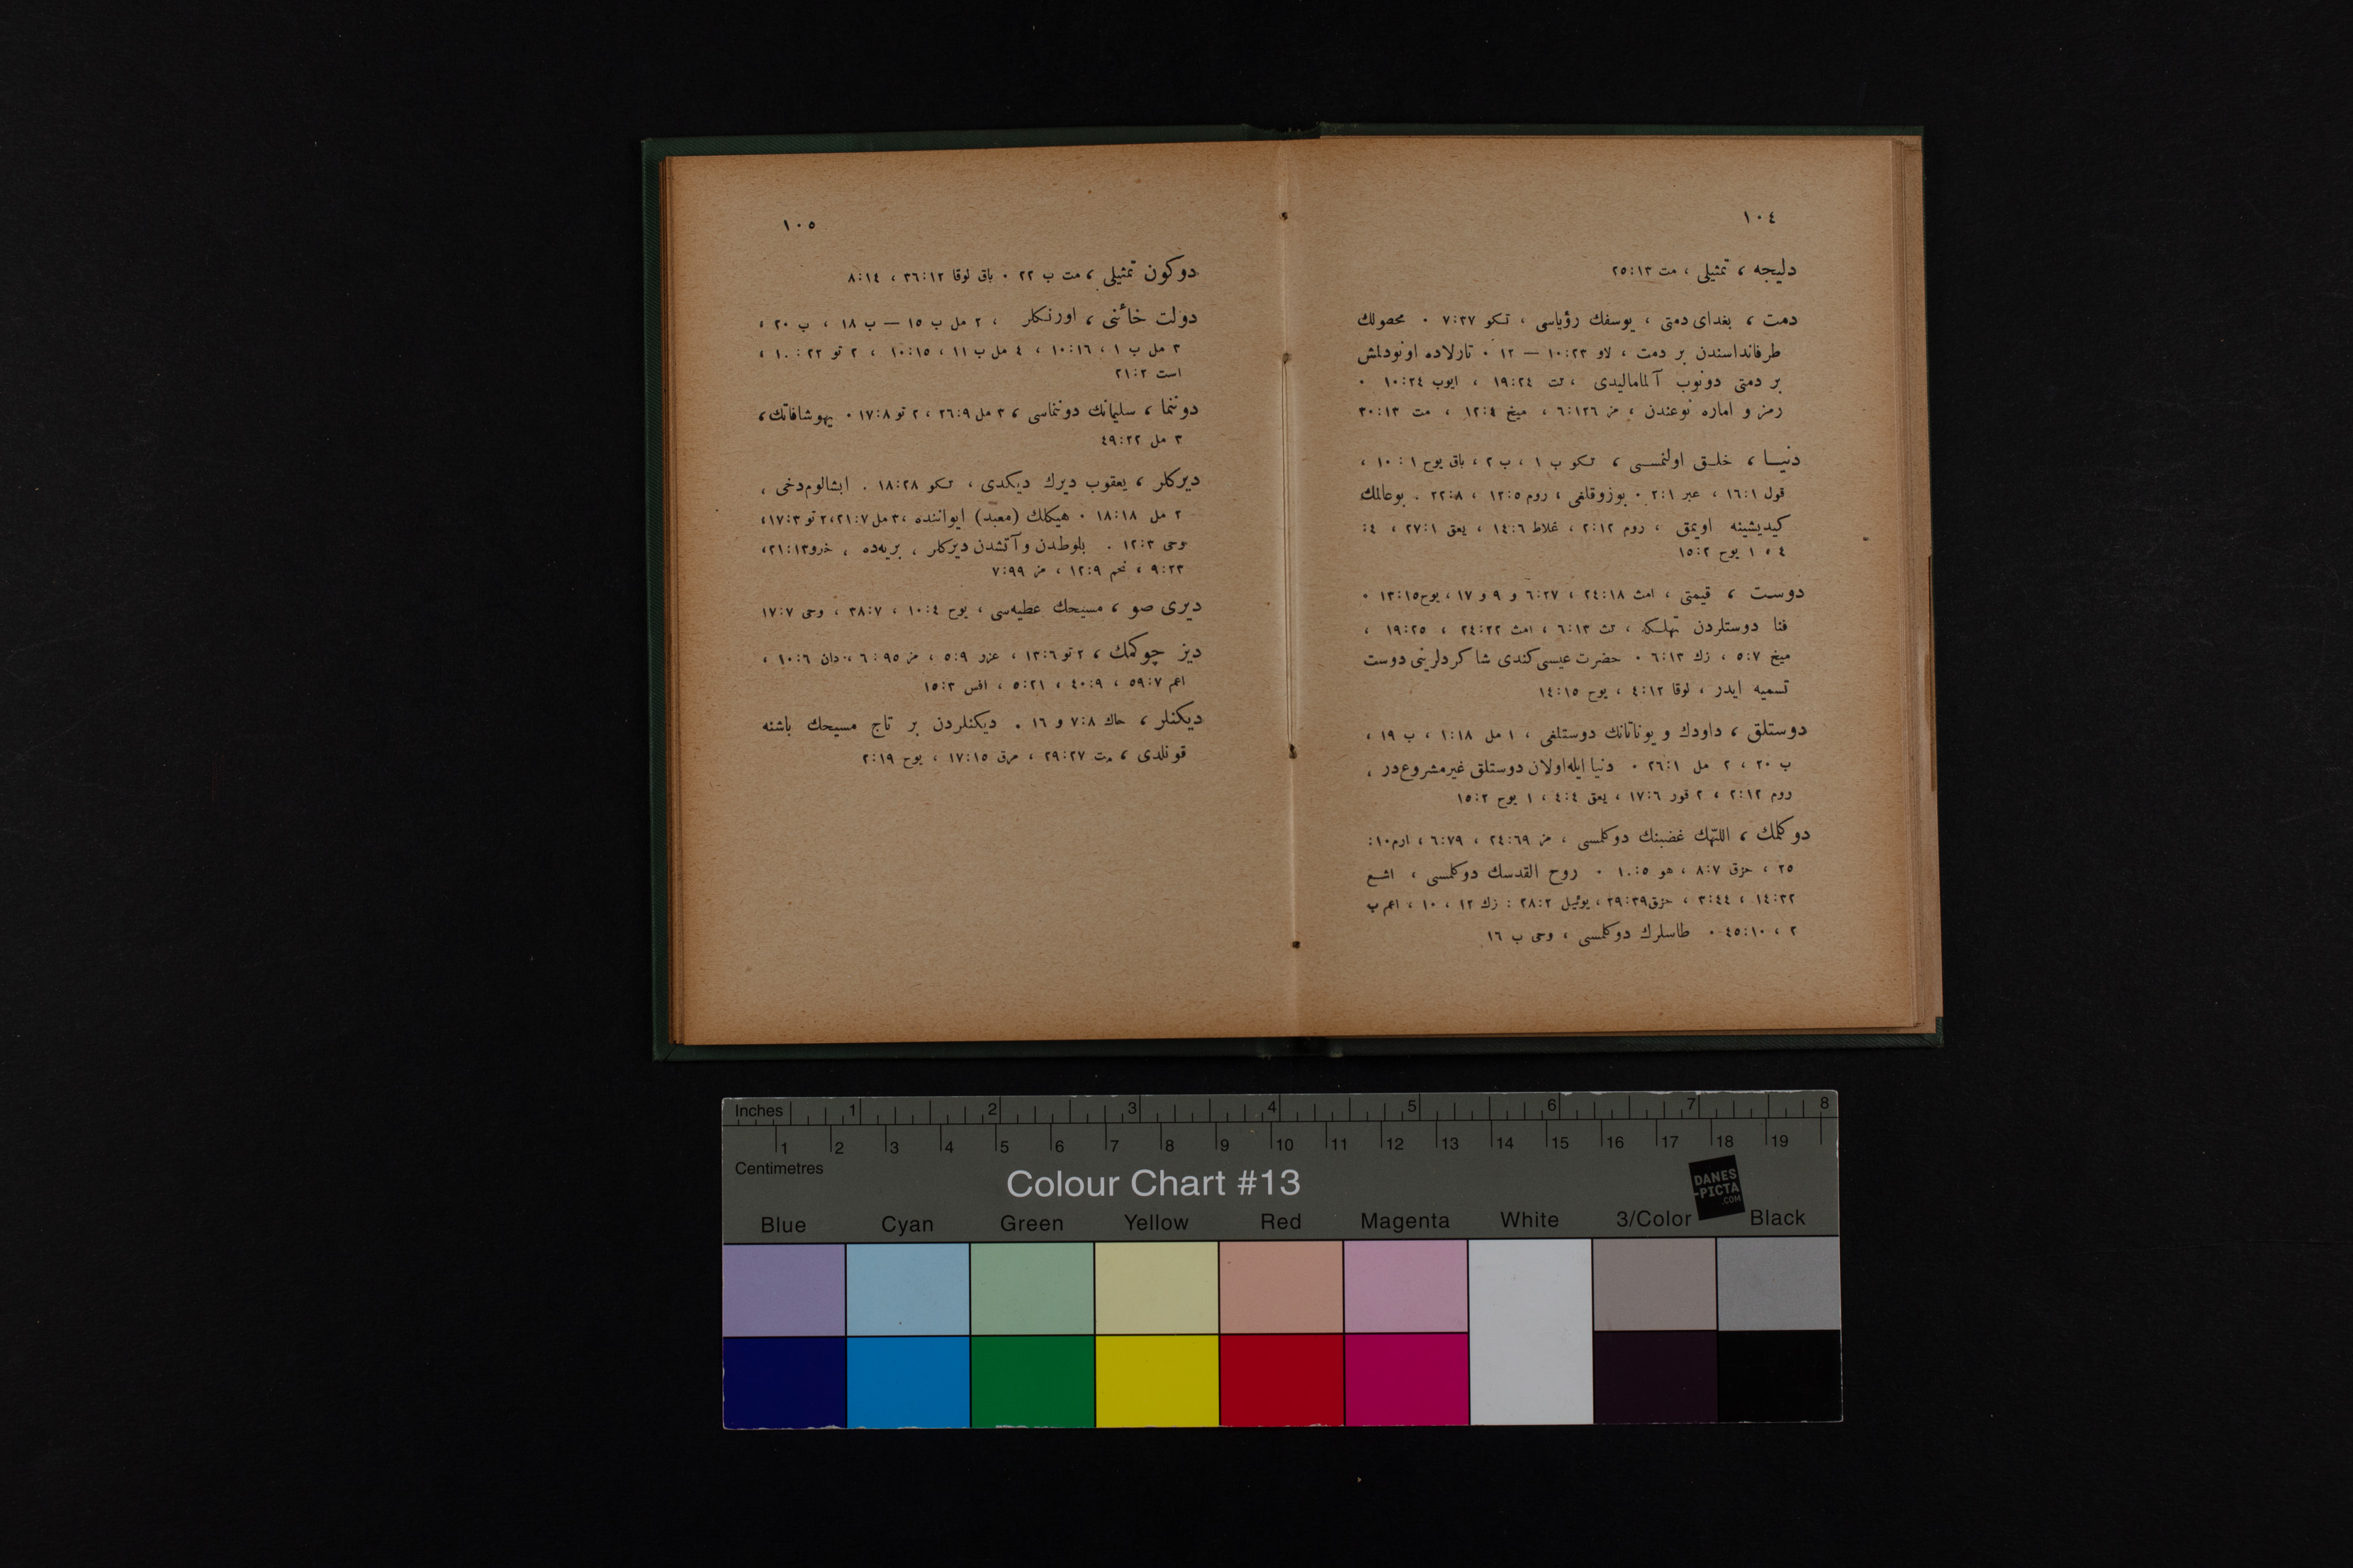 ١٠٤
دليجه ، تمثيلى ، مت ٢٥:١٣
دمت ، بغداى دمتى ، يوسفك رؤياسى ، تكو ٧:٣٧ ٠ محصولك
طرفانداسندن بر دمت ، لاو ١٠:٢٣ — ١٢ ٠ تارلاده اونودلمش
بر دمتى دونوب آلماماليدى ، تث ١٩:٢٤ ، ايوب ١٠:٢٤ ٠
رمز و اماره نوعندن ، مز ٦:١٢٦ ، ميخ ١٢:٤ ، مت ٣٠:١٣
دنيا ، خلق اولنمسى ، تكو ب ١ ، ب ٢ ، باق يوح ١ : ١٠ ،
قول ١٦:١ ، عبر ٢:١ ٠ بوزوقلغى ، روم ١٢:٥ ، ٢٢:٨ ٠ بوعالمك
كيديشينه اويمق ، روم ٢:١٢ ، غلاط ١٤:٦ ، يعق ٢٧:١ ، ٤:
٤ ، ١ يوح ١٥:٢
دوست ، قيمتى ، امث ٢٤:١٨ ، ٦:٢٧ و ٩ و ١٧ ، يوح ١٣:١٥ ٠
فنا دوستلردن تهلكه ، تث ٦:١٣ ، امث ٢٤:٢٢ ، ١٩:٢٥ ،
ميخ ٥:٧ ، زك ٦:١٣ ٠ حضرت عيسى كندى شاكردلرينى دوست
تسميه ايدر ، لوقا ٤:١٢ ، يوح ١٤:١٥
دوستلق ، داودك و يوناتانك دوستلغى ، ١ مل ١:١٨ ، ب ١٩ ،
ب ٢٠ ، ٢ مل ٢٦:١ ٠ دنيا ايله اولان دوستلق غيرمشروع در ،
روم ٢:١٢ ، ٢ قور ١٧:٦ ، يعق ٤:٤ ، ١ يوح ١٥:٢
دوكلمك ، اللّٰهك غضبنك دوكلمسى ، مز ٢٤:٦٩ ، ٦:٧٩ ، ارم ١٠:
٢٥ ، حزق ٨:٧ ، هو ١٠:٥ ٠ روح القدسك دوكلمسى ، اشع
١٤:٣٢ ، ٣:٤٤ ، حزق ٢٩:٣٩ ، يوئيل ٢٨:٢ : زك ١٢ ، ١٠ ، اعم ب
٢ ، ٤٥:١٠ ٠ طاسلرك دوكلمسى ، وحى ب ١٦
١٠٥
دوكون تمثيلى ، مت ب ٢٢ ٠ باق لوقا ٣٦:١٢ ، ٨:١٤
دولت خائنى ، اورنكلر ، ٢ مل ب ١٥ — ب ١٨ ، ب ٢٠ ،
٣ مل ب ١ ، ١٠:١٦ ، ٤ مل ب ١١ ، ١٠:١٥ ، ٢ تو ٢٢ : ١٠ ،
است ٢١:٢
دوننما ، سليمانك دوننماسى ، ٣ مل ٢٦:٩ ، ٢ تو ١٧:٨ ٠ يهوشافاتك ،
٣ مل ٤٩:٢٢
ديركلر ، يعقوب ديرك ديكدى ، تكو ١٨:٢٨ ٠ ابشالوم دخى ،
٢ مل ١٨:١٨ ٠ هيكلك (معبد) ايواننده ، ٣ مل ٢١:٧ ، ٢ تو ١٧:٣ ،
وحى ١٢:٣ ٠ بلوطدن و آتشدن ديركلر ، بريه‌ده ، خرو ٢١:١٣ ،
٩:٣٣ ، نحم ١٢:٩ ، مز ٧:٩٩
ديرى صو ، مسيحك عطيه‌سى ، يوح ١٠:٤ ، ٣٨:٧ ، وحى ١٧:٧
ديز چوكمك ، ٢ تو ١٣:٦ ، عزر ٥:٩ ، مز ٦:٩٥ ، دان ١٠:٦ ،
اعم ٥٩:٧ ، ٤٠:٩ ، ٥:٢١ ، افس ١٥:٣
ديكنلر ، حاك ٧:٨ و ١٦ ٠ ديكنلردن بر تاج مسيحك باشنه
قونلدى ، مت ٢٩:٢٧ ، مرق ١٧:١٥ ، يوح ٢:١٩
Inches 1 2 3 4 5 6 7 8
1 2 3 4 5 6 7 8 9 10 11 12 13 14 15 16 17 18 19
Centimetres
Colour Chart #13
DANES
-PICTA
.COM
Blue Cyan Green Yellow Red Magenta White 3/Color Black